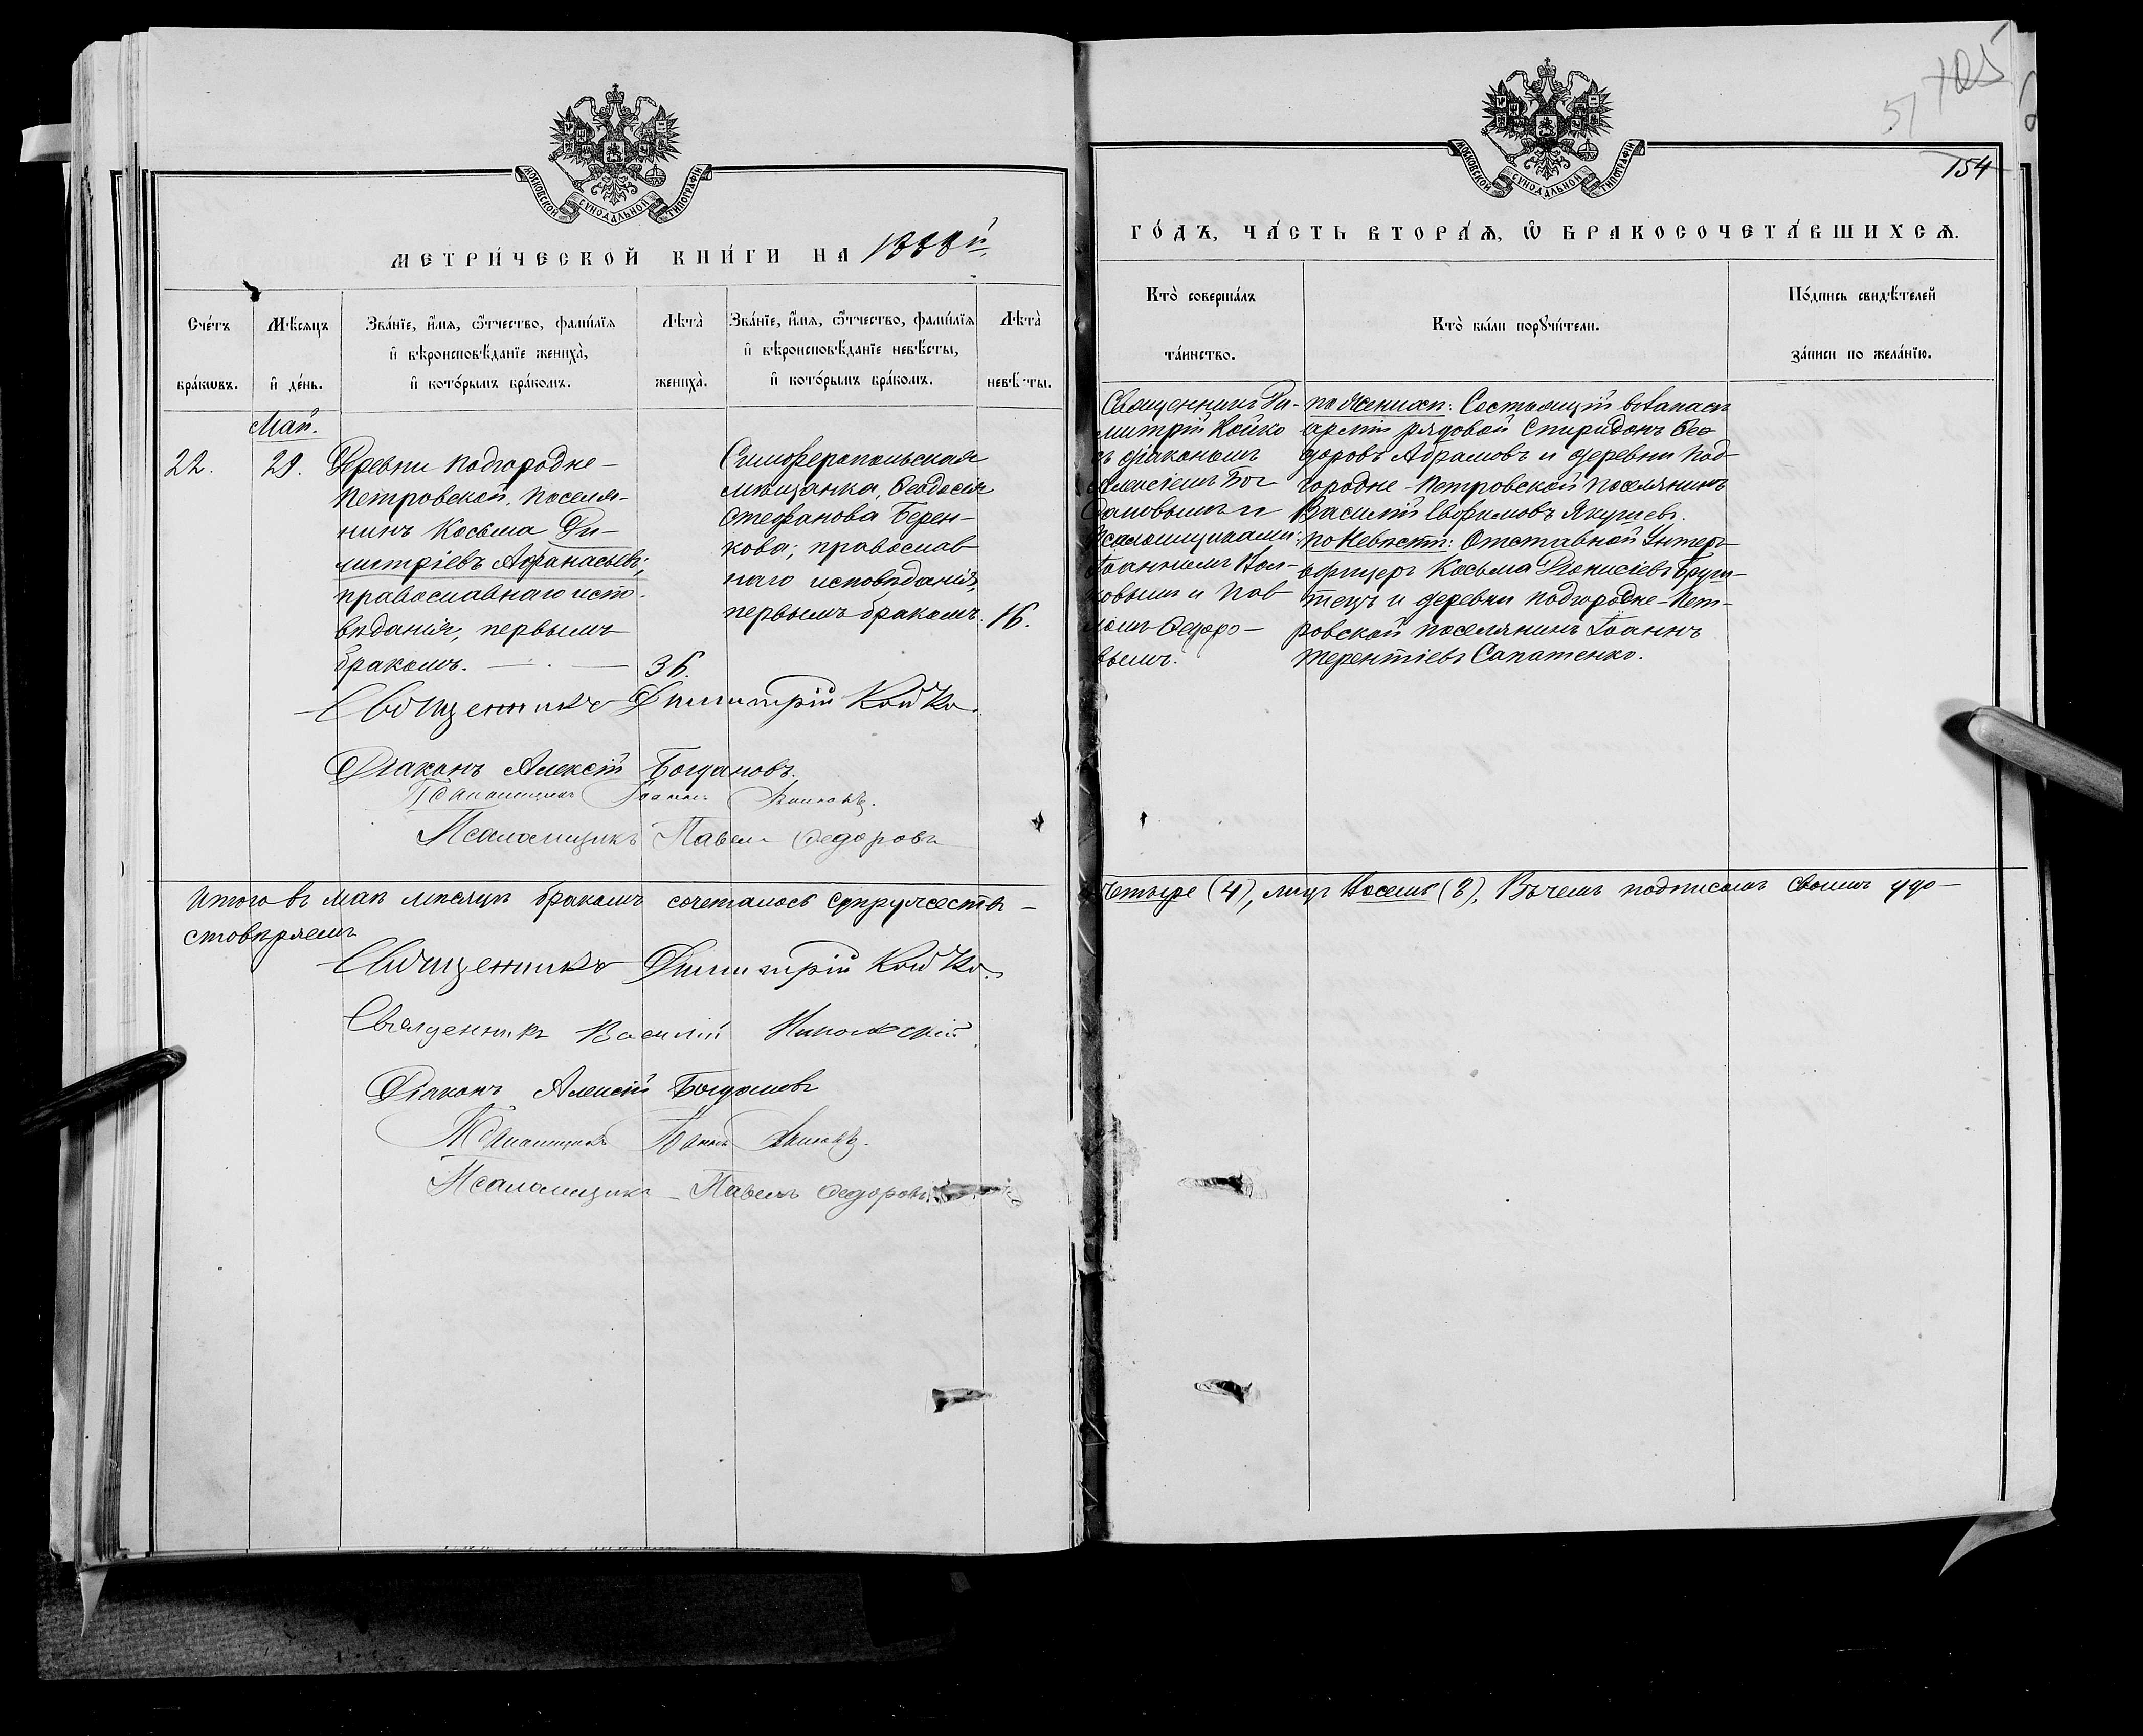 МОСКОВСКОЙ СѴНОДАЛЬНОЙ ТИПОГРАФІИ
МЕТРИ́ЧЕСКОЙ КНИ́ГИ НА 1888й
Сче́тъ бра́кѡвъ.
Мѣ́сяцъ и҆ де́нь.
Зва́нїе, и҆́мѧ, ѻ҆́тчество, фами́лїѧ
и҆ вѣроисповѣ́данїе жениха̀,
и҆ кото́рымъ бра́комъ.
Лѣта̀ жениха̀.
Зва́нїе, и҆́мѧ, ѻ҆́тчество, фами́лїѧ
и҆ вѣроисповѣ́данїе невѣ́сты,
и҆ кото́рымъ бра́комъ.
Лѣта̀ невѣ́сты.
Май.
22.
29.
Деревни Подгородне-
Петровской, поселя-
нинъ Косьма Ди-
митріевъ Афанасьевъ;
православнаго испо-
вѣданія, первымъ
бракомъ.
36.
Симферопольская
мѣщанка, Ѳеодосія
Стефанова Берен-
кова; православ
наго исповѣданія,
первымъ бракомъ.
16.
Священникъ Димитрій Койко.
Діаконъ Алексій Богдановъ.
Псаломщикъ Іоаннъ
Псаломщикъ Павелъ Ѳедоровъ
Итого въ маѣ мѣсяцѣ бракомъ сочеталось супружествъ-
стовѣряемъ
Священникъ Димитрій Койко.
Священникъ Василій Никольскій
Діаконъ Алексій Богдановъ
Псаломщикъ Іоаннъ
Псаломщикъ Павелъ Ѳедоровъ
105
51
154
МОСКОВСКОЙ СѴНОДАЛЬНОЙ ТИПОГРАФІИ
ГО́ДЪ, ЧА́СТЬ ВТОРА́Ѧ, Ѡ҆ БРАКОСОЧЕТА́ВШИХСѦ.
Кто̀ соверша́лъ
та́инство.
Кто̀ бы́ли порꙋчи́тели.
По́дпись свидѣ́телей
за́писи по жела́нїю.
Священникъ Ди-
митрій Койко
съ діакономъ
Алексіемъ Бог
дановымъ и
Псаломщиками:
Іоанномъ
и Пав
ломъ Ѳедоро-
вымъ.
по Женихѣ: Состоящій въ запасѣ
арміи рядовой Спиридонъ Ѳео
доровъ Абрамовъ и деревни Под-
городне-Петровской поселянинъ
Василій Якушевъ.
по Невѣстѣ: Отставной Унтеръ
офицеръ Косьма Діонисіевъ
и деревни Подгородне-Пет-
ровской поселянинъ Іоаннъ
Терентіевъ Сапатенко.
Четыре (4), лицъ Восемь (8), Въ чемъ подписомъ своимъ удо-